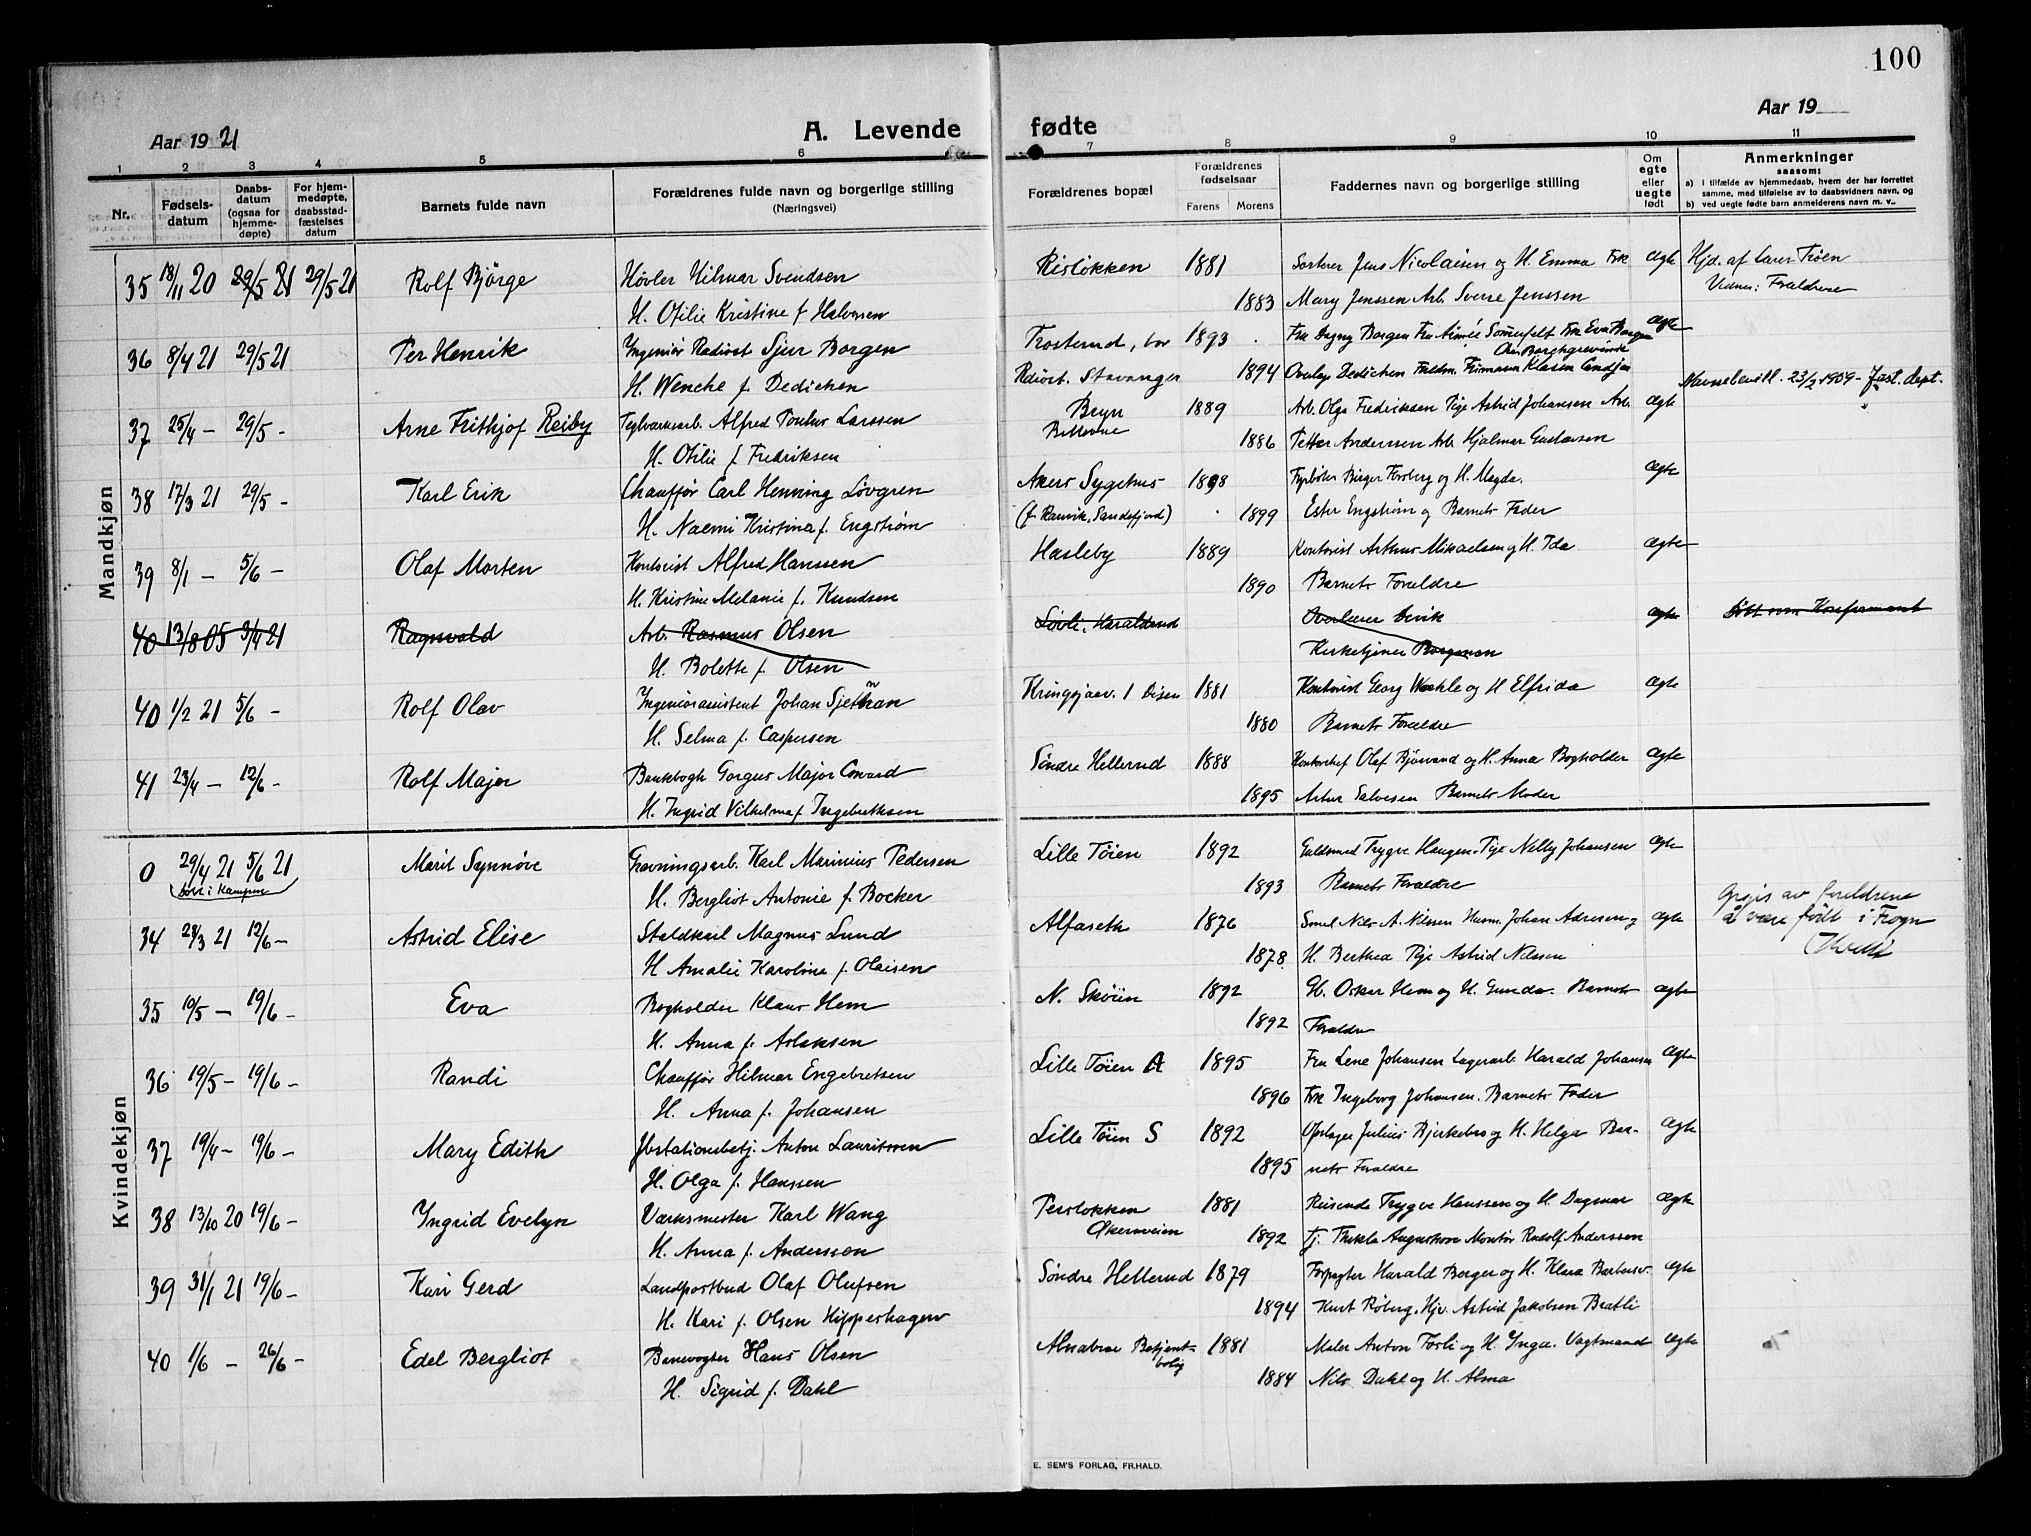 100
Aar 1921
A. Levende
fødte
Aar 19
1 2 3 4 5 6 7 8 9 10 11
Nr.
Fødsels-
datum
Daabs-
datum
(ogsaa for
hjemme-
døpte)
For hjem-
medøpte,
daabsstad-
fæstelses
datum
Barnets fulde navn
Forældrenes fulde navn og borgerlige stilling
(Næringsvei)
Forældrenes bopæl
Forældrenes
fødselsaar
Farens Morens
Faddernes navn og borgerlige stilling
Om
egte
eller
uegte
født
Anmerkninger
saasom:
a) I tilfælde av hjemmedaab, hvem der har forrettet
samme, med tilføielse av to daabsvidners navn, og
b) ved uegte fødte barn anmelderens navn m. v..
Mandkjøn
35 18/11 20 29/5 21 29/5 21 Rolf Bjørge Høvler Hilmar Svendsen Risløkken 1881 Sorterer Jens Nicolaisen og H. Emma Frk Ægte Hjd. af Lærer Trøen
H. Otilie Kristine f Halvorsen 1883 Mary Jenssen Arb. Sverre Jenssen Vidner: Forældrene
36 8/4 21 29/5 21 Per Henrik Ingeniør Radiost Sjur Borgen Trosterud, bor 1893 Fru Dagny Borgen Fru Aimée Sommerfelt Frk Eva Borgen Ægte
H. Wenche f. Dedichen Rdiost. Stavanger 1894 Overlæge Dedichen
Navnebevill. 23/2 1909 - Just. dept.
37 25/4 - 29/5 - Arne Frithjof Reiby Teglverksarb. Alfred Larssen Bryn 1889 Arb. Olga Fredriksen Pige Astrid Johansen Arb. Ægte
H. Otilie f. Fredriksen Bellevue 1886 Petter Anderssen Arb Hjalmar Gustavsen
38 17/3 21 29/5 - Karl Erik Chauffør Carl Henning Lövgren Akers Sygehus 1898 Fyrbøter Birger Forsberg og H. Magda. Ægte
H. Naemi Kristina f. Engstrøm (f. Ranvik, Sandefjord) 1899 Ester Engstrøm og Barnets Fader
39 8/1 - 5/6 - Olaf Morten Kontorist Alfred Hanssen Hasleby 1889 Kontorist Arthur Mikaelsen og H. Ida Ægte
H. Kristine Melanie f. Knudsen 1890 Barnets Forældre
40 13/8 05 3/4 21 Ragnvald Arb. Rasmus Olsen Løvli, Haraldrud Overlærer Ervik ægte Døbt som Konfirmant
H. Bolette f. Olsen Kirketjener Borgersen
40 1/2 21 5/6 - Rolf Olav Ingeniørassistent Johan Kringsjaav. 1 Disen 1881 Kontorist Georg og H Elfrida Ægte
H. Selma f. Caspersen 1880 Barnets Forældre
41 23/4 - 12/6 - Rolf Major Bankbogh. Gorgus Major Conrad Søndre Hellerud 1888 Kontorchef Olaf Bjørvand og H. Anna Bogholder Ægte
H. Ingrid Vilhelma f. Ingebretksen 1895 Artur Salvesen Barnets Moder
Kvindekjøn
0 29/4 21 5/6 21 Marit Synnøve Gravningsarb. Karl Marinius Pedersen Lille Tøien 1892 Guldsmed Trygve Haugen. Pige Nelly Johansen Ægte
bor i Kampen H. Bergliot Antonie f. Bocker 1893 Barnets Forældre
34 28/3 21 12/6 - Astrid Elise Staldkarl Magnus Lund Alfaseth 1876 Smed Nils A. Nilssen Husm. Johan Adresen og Ægte Opgis av foreldrene
H Amalie Karoline f. Olaisen 1878. H. Berthea Pige Astrid Nilssen å være født i Frogn
35 19/5 - 19/6 - Eva Bogholder Klaus Hem N. Skøien 1892 Gb. Oskar Hem og H. Gunda. Barnets Ægte
H. Anna f. Aslaksen 1892 Forældre
36 19/5 - 19/6 - Randi Chauffør Hilmar Engebretsen Lille Tøien A 1895 Fru Lene Johansen Lagerarb. Harald Johansen Ægte
H. Anna f. Johansen 1896 Frk Ingeborg Johansen. Barnets Fader
37 19/4 - 19/6 - Mary Edith Jbstationsbetj. Anton Lauritssen Lille Tøien S 1892 Opslager Julius Bjerkebro og H. Helga Bar- Ægte
H. Olga f. Hanssen 1895 nets Forældre
38 13/10 20 19/6 - Ingrid Evelyn Værksmester Karl Wang Persløkken 1881 Reisende Trygve Hanssen og H. Dagmar Ægte
H. Anna f. Andersson Økernveien 1892 Tj. Thekla Augustson Montør Rudolf Anderssen
39 31/1 21 19/6 - Kari Gerd Landpostbud Olaf Olufsen Søndre Hellerud 1879 Forpagter Harald Berger og H. Klara Ægte
H. Kari f. Olsen Hipperhagen 1894 Kurt Røberg. Hjv. Astrid Jakobsen Bratli
40 1/6 - 26/6 - Edel Bergliot Banevogter Hans Olsen Alnabru Betjent- 1881 Maler Anton Fosli og H. Inga. Vagtmand Ægte
H. Sigrid f. Dahl bolig 1884 Nils Dahl og H. Alma
E. SEM'S FORLAG, FR.HALD.